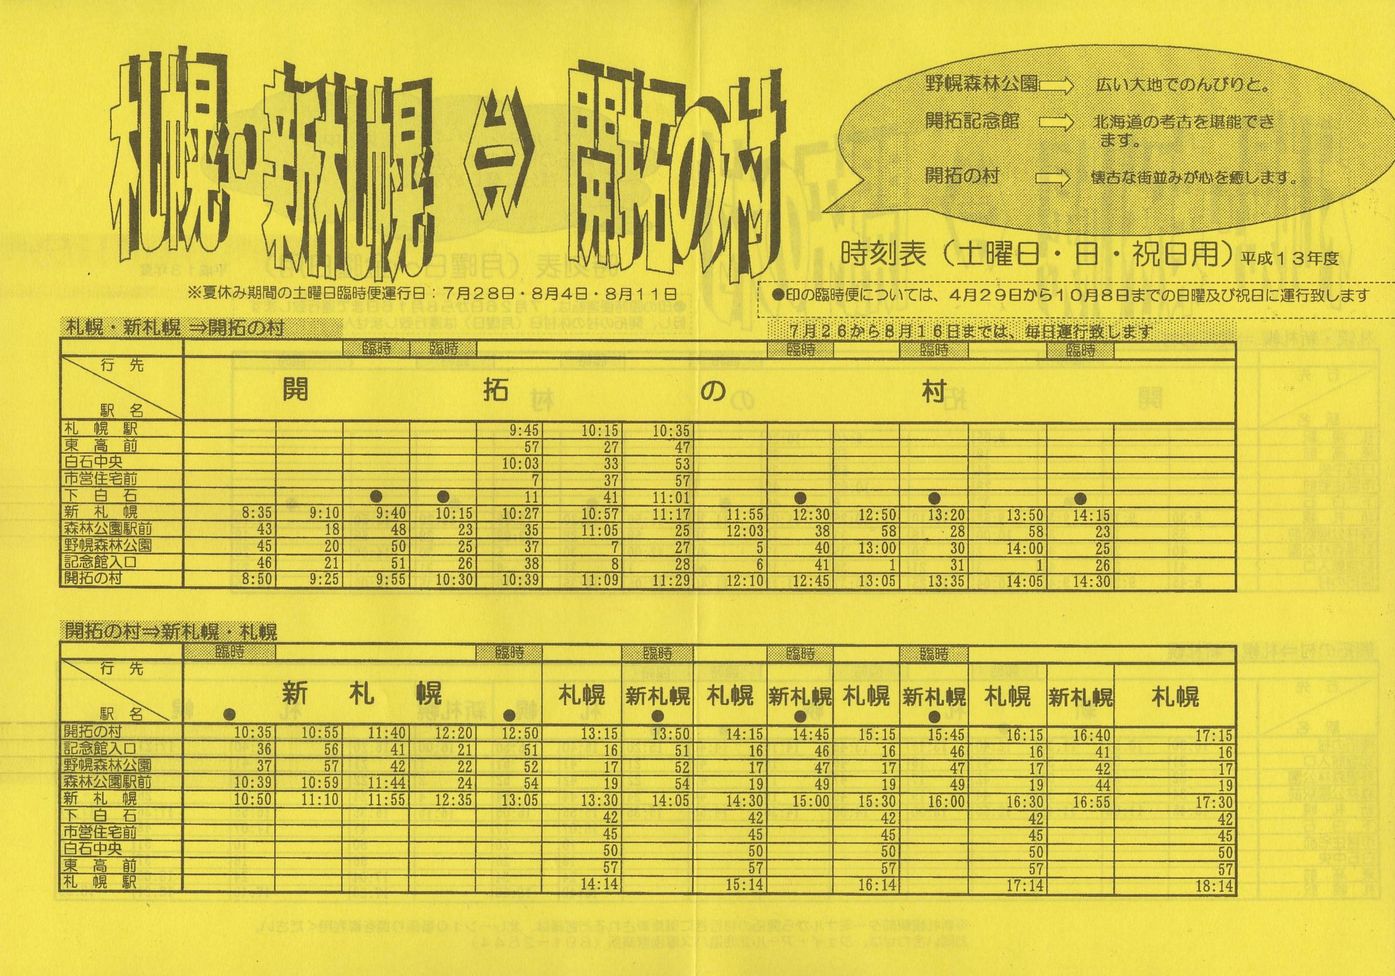 札幌・新札幌 ⇔ 開拓の村
野幌森林公園⇨ 広い大地でのんびりと。
開拓記念館 ⇨ 北海道の考古を堪能でき
ます。
開拓の村 ⇨ 懐古な街並みが心を癒します。
時刻表（土曜日・日・祝日用）平成１３年度
※夏休み期間の土曜日臨時便運行日：７月２８日・８月４日・８月１１日
●印の臨時便については、４月２９日から１０月８日までの日曜及び祝日に運行致します
７月２６から８月１６日までは、毎日運行致します
札幌・新札幌 ⇒開拓の村
臨時 臨時 臨時 臨時 臨時
行 先
開 拓 の 村
駅 名
札 幌 駅 9:45 10:15 10:35
東 高 前 57 27 47
白石中央 10:03 33 53
市営住宅前 7 37 57
下 白 石 ● ● 11 41 11:01 ● ● ●
新 札 幌 8:35 9:10 9:40 10:15 10:27 10:57 11:17 11:55 12:30 12:50 13:20 13:50 14:15
森林公園駅前 43 18 48 23 35 11:05 25 12:03 38 58 28 58 23
野幌森林公園 45 20 50 25 37 7 27 5 40 13:00 30 14:00 25
記念館入口 46 21 51 26 38 8 28 6 41 1 31 1 26
開拓の村 8:50 9:25 9:55 10:30 10:39 11:09 11:29 12:10 12:45 13:05 13:35 14:05 14:30
開拓の村⇒新札幌・札幌
臨時 臨時 臨時 臨時 臨時
行 先
新 札 幌 札幌 新札幌 札幌 新札幌 札幌 新札幌 札幌 新札幌 札幌
駅 名 ● ● ● ● ●
開拓の村 10:35 10:55 11:40 12:20 12:50 13:15 13:50 14:15 14:45 15:15 15:45 16:15 16:40 17:15
記念館入口 36 56 41 21 51 16 51 16 46 16 46 16 41 16
野幌森林公園 37 57 42 22 52 17 52 17 47 17 47 17 42 17
森林公園駅前 10:39 10:59 11:44 24 54 19 54 19 49 19 49 19 44 19
新 札 幌 10:50 11:10 11:55 12:35 13:05 13:30 14:05 14:30 15:00 15:30 16:00 16:30 16:55 17:30
下 白 石 42 42 42 42 42
市営住宅前 45 45 45 45 45
白石中央 50 50 50 50 50
東 高 前 57 57 57 57 57
札 幌 駅 14:14 15:14 16:14 17:14 18:14